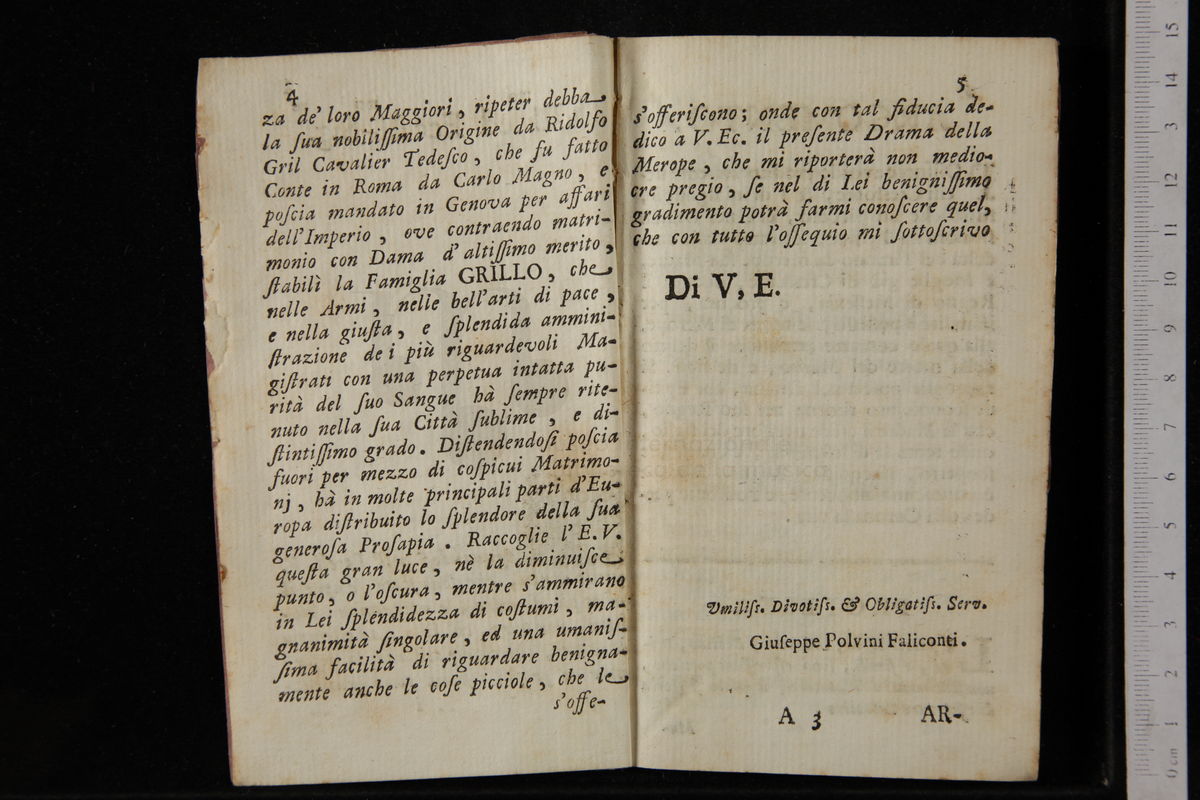 4
za de' loro Maggiori, ripeter debba
la ſua nobiliſſima Origine da Ridolfo
Gril Cavalier Tedeſco, che fu fatto
Conte in Roma da Carlo Magno, e
poſcia mandato in Genova per affari
dell'Imperio, ove contraendo matri-
monio con Dama d'altiſſimo merito,
ſtabilì la Famiglia GRILLO, che
nelle Armi, nelle bell'arti di pace,
e nella giuſta, e ſplendida ammini-
ſtrazione de i più riguardevoli Ma-
giſtrati con una perpetua intatta pu-
rità del ſuo Sangue hà ſempre rite-
nuto nella ſua Città ſublime, e di-
ſtintiſſimo grado. Diſtendendoſi poſcia
fuori per mezzo di coſpicui Matrimo-
nj, hà in molte principali parti d'Eu-
ropa diſtribuito lo ſplendore della ſua
generoſa Proſapia. Raccoglie l'E.V.
queſta gran luce, nè la diminuiſce
punto, o l'oſcura, mentre s'ammirano
in Lei ſplendidezza di coſtumi, ma-
gnanimità ſingolare, ed una umaniſ-
ſima facilità di riguardare benigna-
mente anche le coſe picciole, che le
s'offe-
5
s'offeriſcono; onde con tal fiducia de-
dico a V. Ec. il preſente Drama della
Merope, che mi riporterà non medio-
cre pregio, ſe nel di Lei benigniſſimo
gradimento potrà farmi conoſcere quel,
che con tutto l'oſſequio mi ſottoſcrivo
Di V, E.
Vmiliſs. Divotiſs. & Obligatiſs. Serv.
Giuſeppe Polvini Faliconti.
A 3 AR-
15
14
3
12
11
10
9
8
7
6
5
4
3
2
1
0 cm